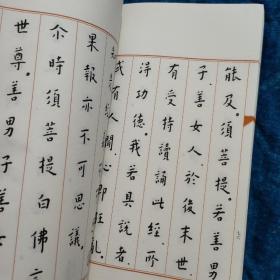 能及。須菩提。若善男
子善女人。於後末世。
有受持讀誦此經。所
得功德。我若具說者。
或有人聞。心即狂亂。
果報亦不可思議。
尒時須菩提白佛言
世尊。善男子善女